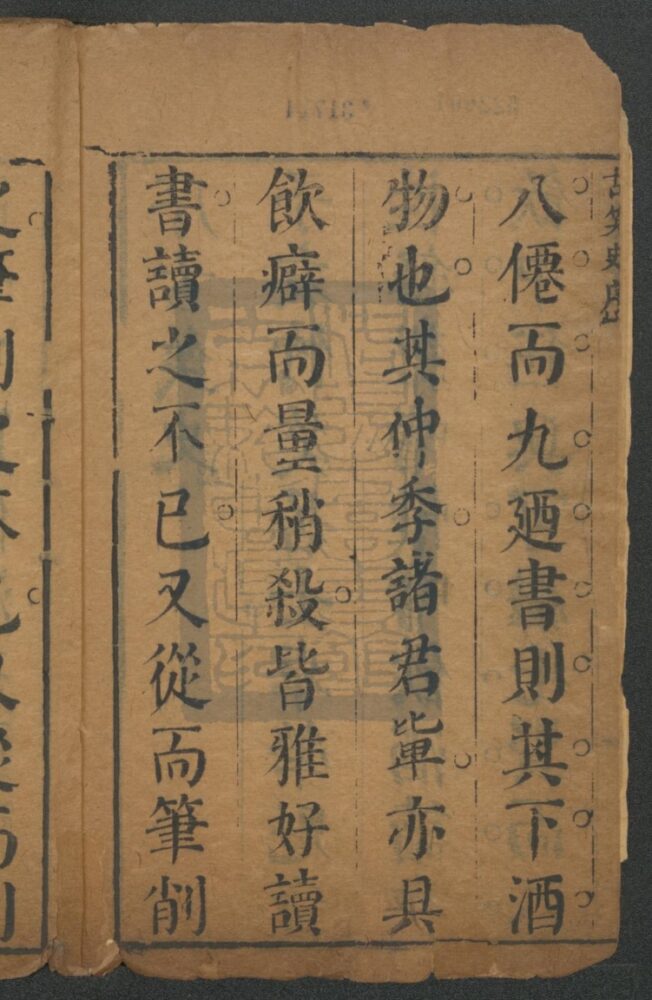 古笑史序
八僊而九廼書則其下酒
物也其仲季諸君軰亦具
飲癖而量稍殺皆雅好讀
書讀之不已又從而筆削